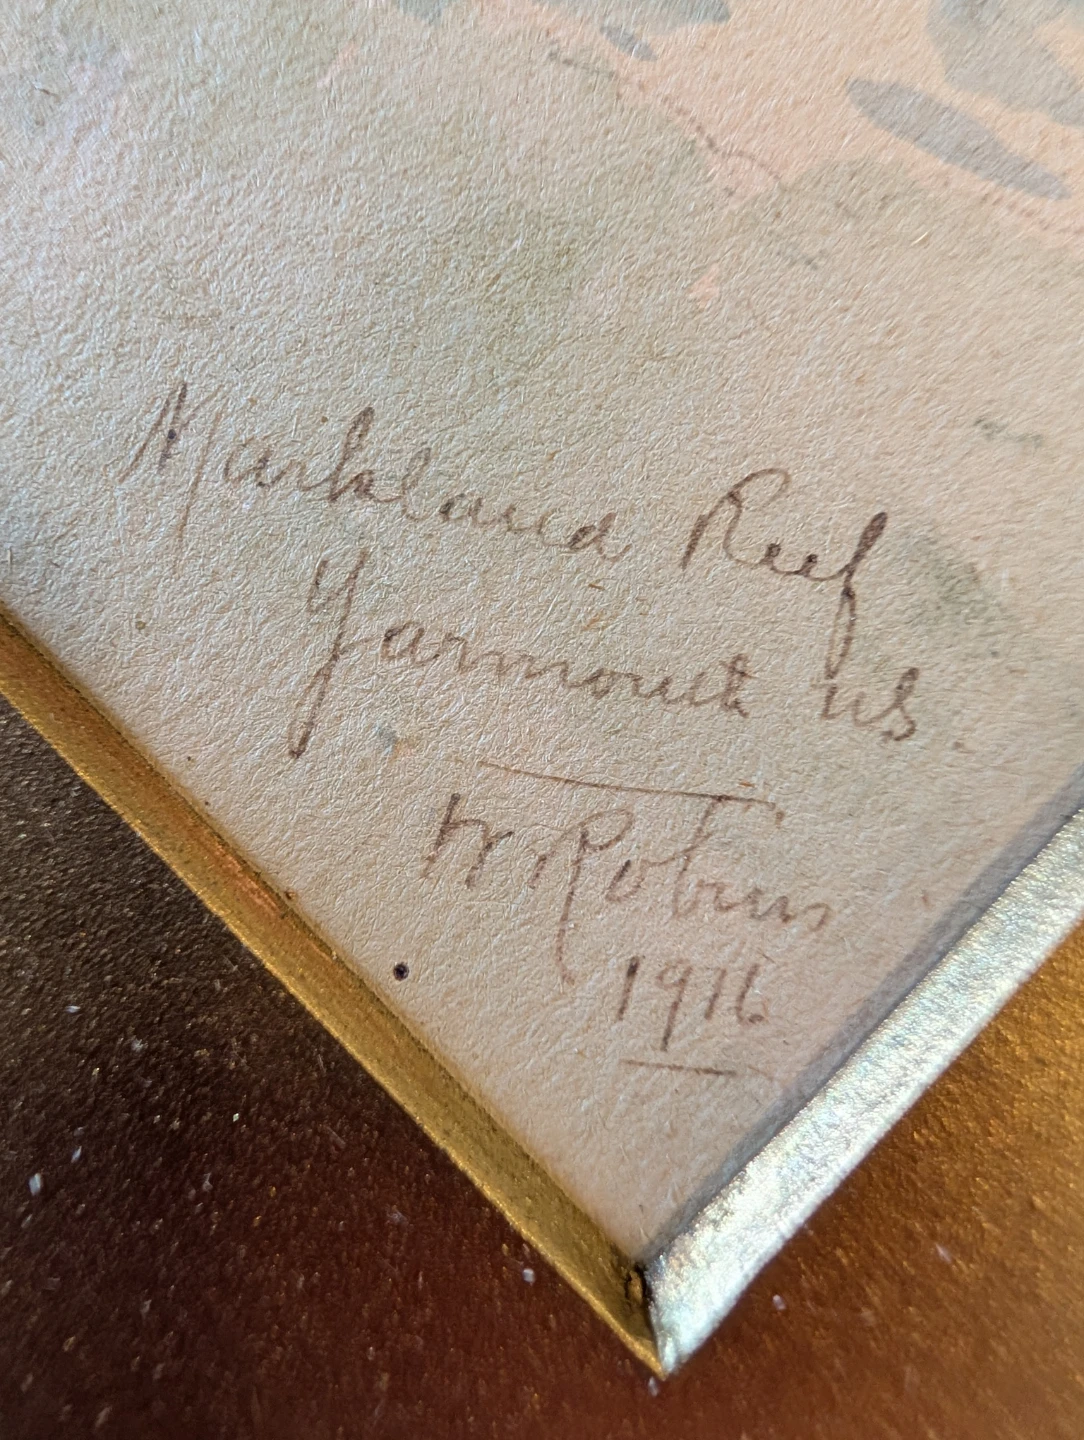 Markland Reef
Yarmouth NS.
W Robins
1916